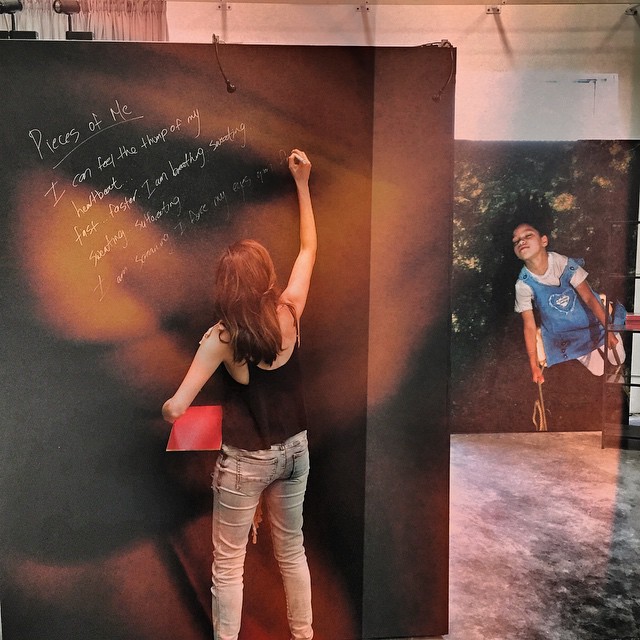 Pieces of Me
I can feel the thump of my
heartbeat.
fast. faster I am breathing sweating
sweating suffocating
I am someone I